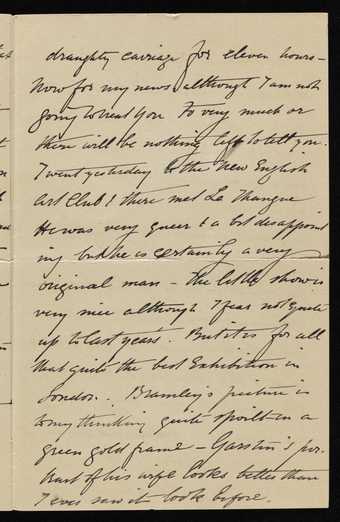 draughty carriage for eleven hours –
Now for my news although I am not
going to treat you to very much or
there will be nothing left to tell you.
I went yesterday to the New English
Art Club & there met La Thangue
He was very queer & a bit disappoint
ing but he is certainly a very
original man – The little show is
very nice although I fear not quite
up to last year's. But it is for all
that quite the best Exhibition in
London. Bramley's picture is
to my thinking quite spoilt in a
green gold frame – Garstin's por-
trait of his wife looks better than
I ever saw it look before.